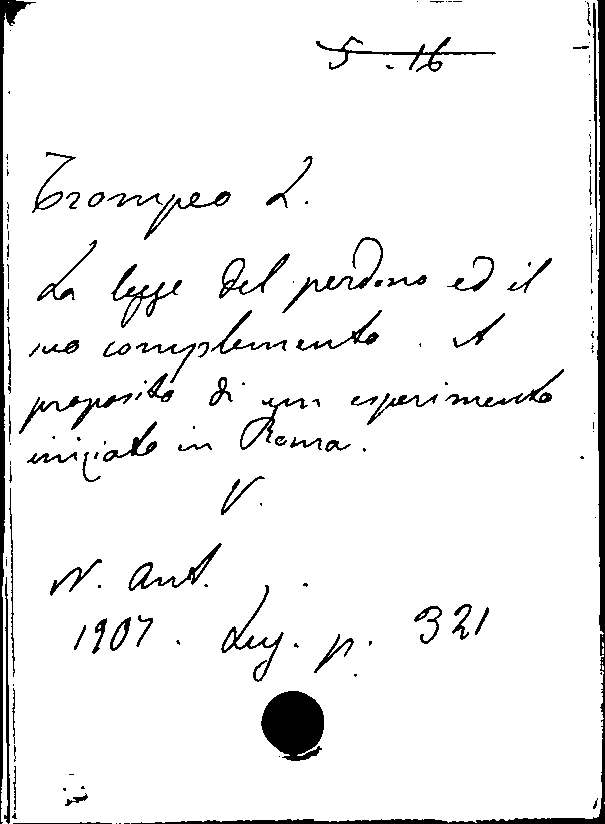 5.16
Trompeo L.
La legge del perdono ed il
suo complemento. A
proposito di un esperimento
iniziato in Roma.
V.
N. Ant.
1907. Lug. p. 321